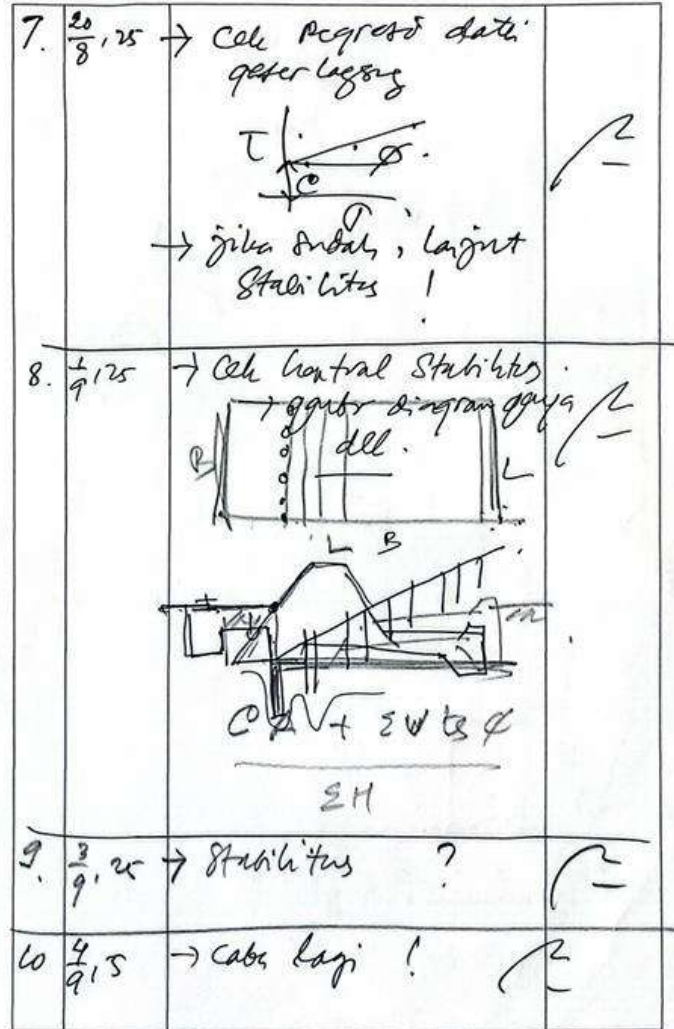 7. 20/8, 25 → Cek regresi data
geser lagsung
τ
φ
C
σ
→ jika sudah, lanjut
Stabilitas !
8. 1/9, 25 → Cek kontrol Stabilitas.
→ diagram gaya
dll.
B
L
L B
C + ΣW tg φ
ΣH
9. 3/9, 25 → Stabilitas ?
10 4/9, 5 → Coba lagi !